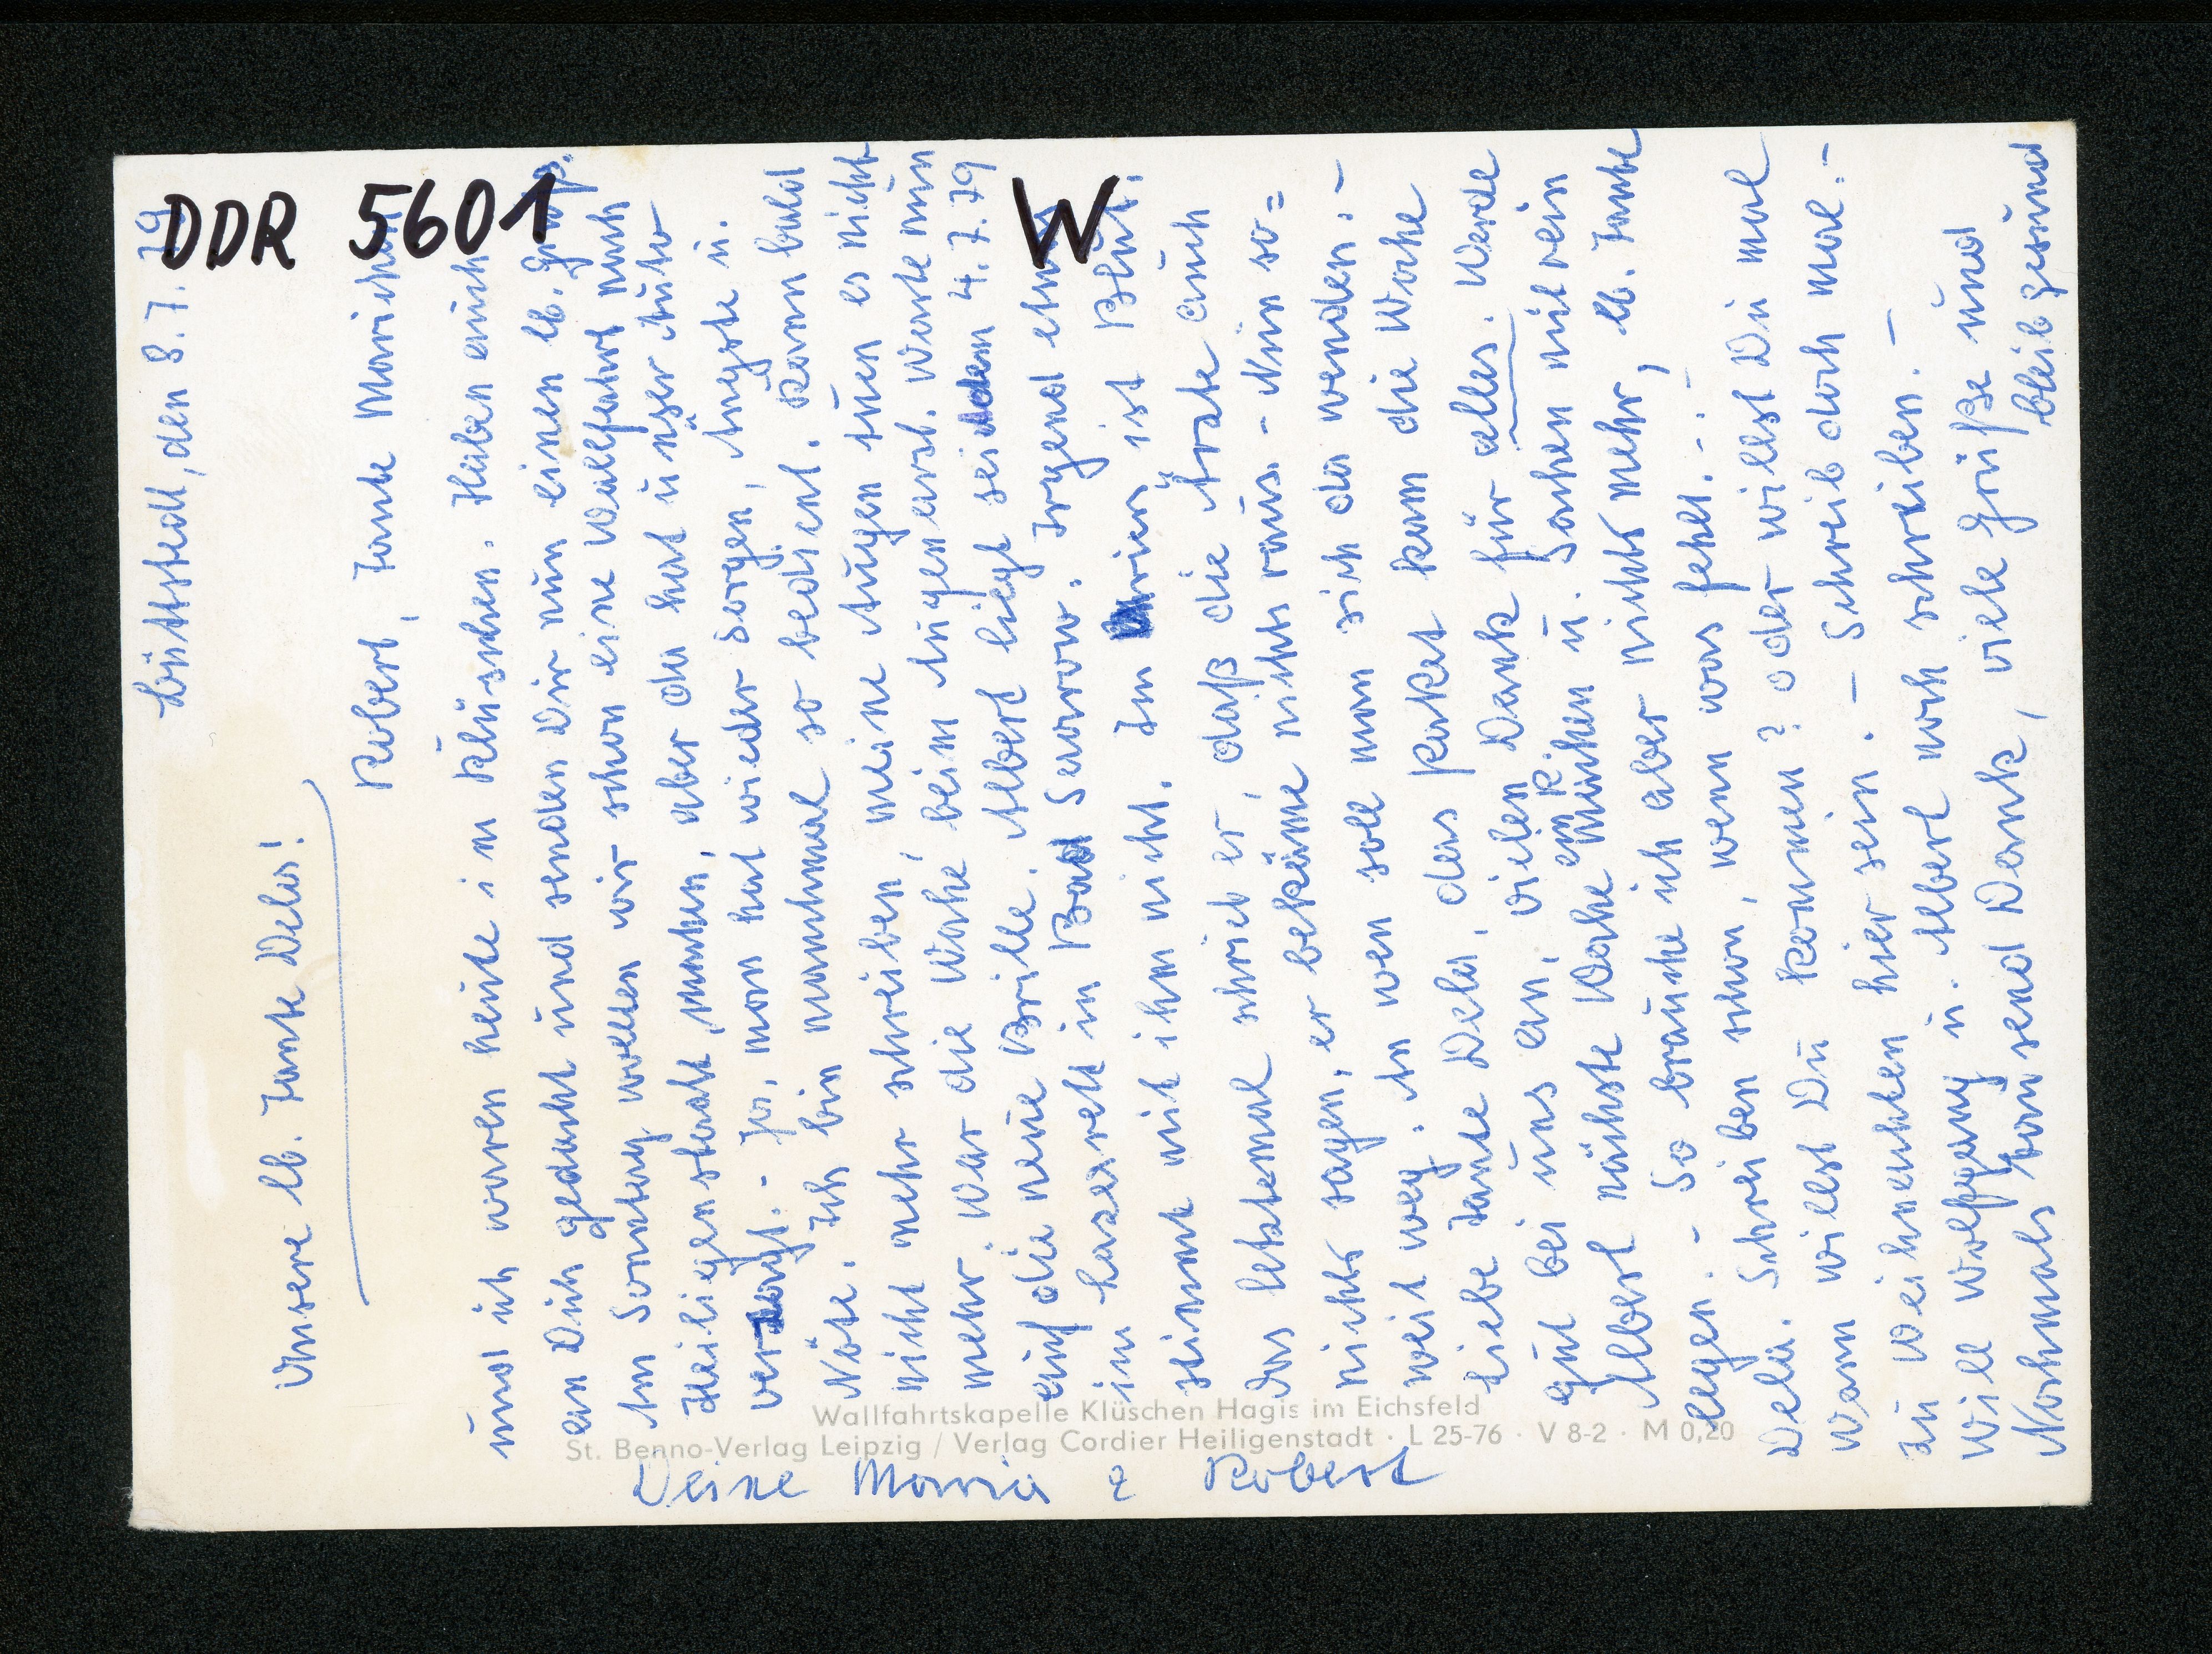 DDR 5601
W
Büttstedt, den 8. 7. 79
Unsere lb. Tante Dela!
Robert, Tante Mariechen
und ich waren heute im Klüschen. Haben auch
an Dich gedacht und senden Dir nun einen lb. Gruß.
Am Sonntag wollen wir schon eine Wallfahrt nach
Heiligenstadt machen, aber da hat unser Auto
versagt. - Ja, man hat wieder Sorgen, Ängste u.
Nöte. Ich bin manchmal so bedient. Kann bald
nicht mehr schreiben, meine Augen tuen es nicht
mehr. War die Woche beim Augenarzt. Warte nun
auf die neue Brille. Albert liegt seit dem 4. 7. 79
im Lazarett in Bad Saarow. Irgend etwas
stimmt mit ihm nicht. Im Urin ist Blut.
Das letztemal schrieb er, daß die Ärzte auch
nichts sagen, er bekäme nichts raus. - Nun so=
weit weg. An wen soll man sich da wenden. -
Liebe Tante Dela, das Paket kam die Woche
gut bei uns an, vielen Dank für alles. Werde
Albert nächste Woche ein P. machen u. Sachen mit rein
legen. - So brauche ich aber nichts mehr, lb. Tante
Dela. Schreiben schon, wenn was fehlt. - -
Wann willst Du kommen? oder willst Du mal
zu Weihnachten hier sein. - Schreib doch mal. -
Will Wolfgang u. Albert noch schreiben. -
Nochmals tausend Dank, viele Grüße und
bleib gesund
Deine Maria & Robert
Wallfahrtskapelle Klüschen Hagis im Eichsfeld
St. Benno-Verlag Leipzig / Verlag Cordier Heiligenstadt · L 25-76 · V 8-2 · M 0,20